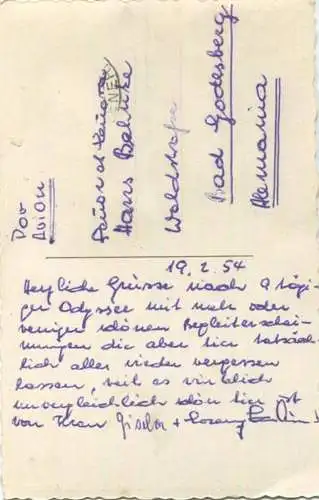 Por
Avion
Señores
Hans Behnke
Waldstrasse
Bad Godesberg
Alemania
19.2.54
Herzliche Grüsse nach 9 tägi-
ger Odyssee mit mehr oder
weniger schönen Begleiterschei-
nungen die aber hier tatsäch-
lich alles wieder vergessen
lassen, weil es wirklich
unvergleichlich schön hier ist
von Ihren Gisela +